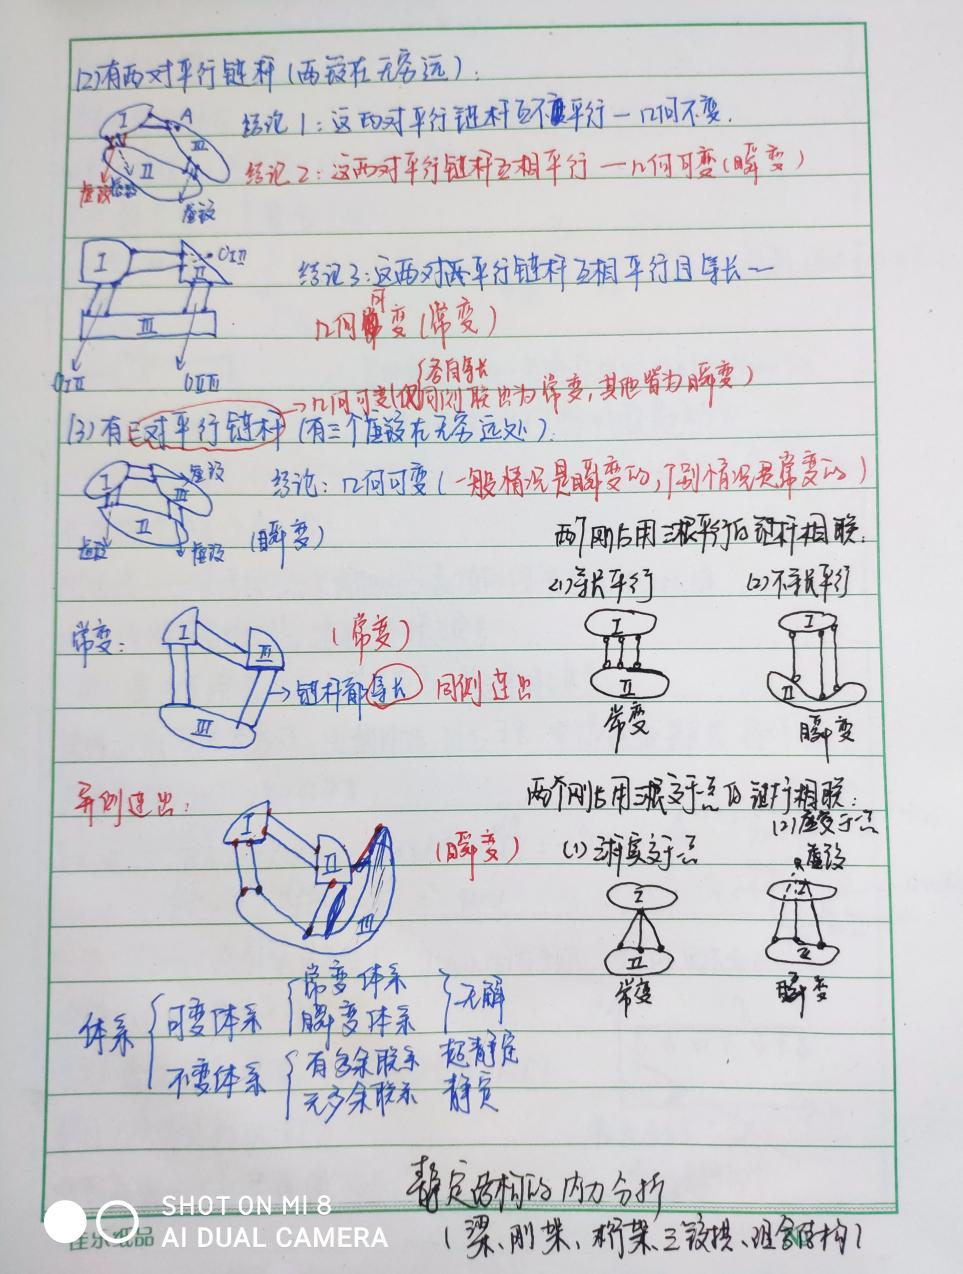 (2)有两对平行链杆(两铰在无穷远):
I A III II
虚铰 虚铰 虚铰
结论1:这两对平行链杆互不平行—几何不变.
结论2:这两对平行链杆互相平行—几何可变(瞬变)
I II III
结论3:这两对两平行链杆互相平行且等长—
几何可变(常变)
→几何可变(仅同侧联出为常变,其他皆为瞬变)
各自等长
(3)有三对平行链杆(有三个虚铰在无穷远处):
I II III
虚铰 虚铰 虚铰
结论:几何可变(一般情况是瞬变的,个别情况是常变的)
(瞬变)
两个刚片用三根平行的链杆相联:
(1)等长平行 (2)不等长平行
I II 常变
I II 瞬变
常变:
I III III
(常变)
→链杆都等长 同侧连出
异侧连出:
I II III
(瞬变)
两个刚片用三根交于一点的链杆相联:
(1)三杆实交于一点
(2)虚交于一点
虚铰
I II 常变
I II 瞬变
体系
可变体系 常变体系 瞬变体系 无解
不变体系 有多余联系 超静定
无多余联系 静定
静定结构的内力分析
(梁、刚架、桁架、三铰拱、组合结构)
SHOT ON MI 8
AI DUAL CAMERA
佳尔纸品